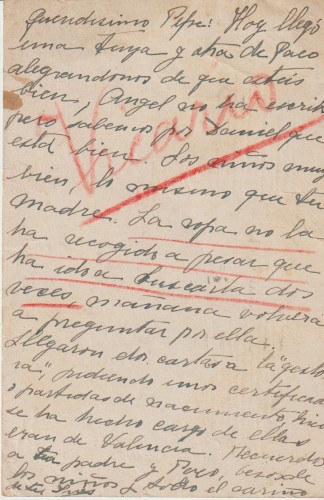 Queridisimo Pepe: Hoy llegó
una tuya y otra de Paco
alegrandonos de que esteis
bien, Angel no ha escrito
pero sabemos por Daniel que
está bien. Los niños muy
bien, lo mismo que tu
madre. La ropa no la
ha recogido a pesar que
ha ido a buscarla dos
veses, mañana volverá
a preguntar por ella.
Llegaron dos cartas a la "gesto
ra", pidiendo unos certificado
o partidas de nacimiento,
se ha hecho cargo de ellas
eran de Valencia. Recuerdos
a tu padre y Paco, besos de
los niños y todo el cariño
de tu